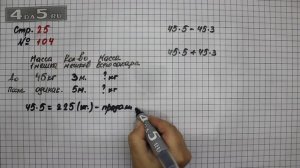 4DA5.RU
Стр. 25
№ 104
45·5 - 45·3
45·5 + 45·3
Масса Кол-во Масса
1 мешка мешков всего сахара
До 45 кг 3 м. ? кг
После одинак. 5 м. ? кг
45·5 = 225 (кг) - продали